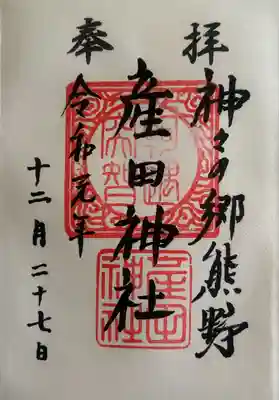 奉拝
神々の郷熊野
産田神社
令和元年
十二月二十七日